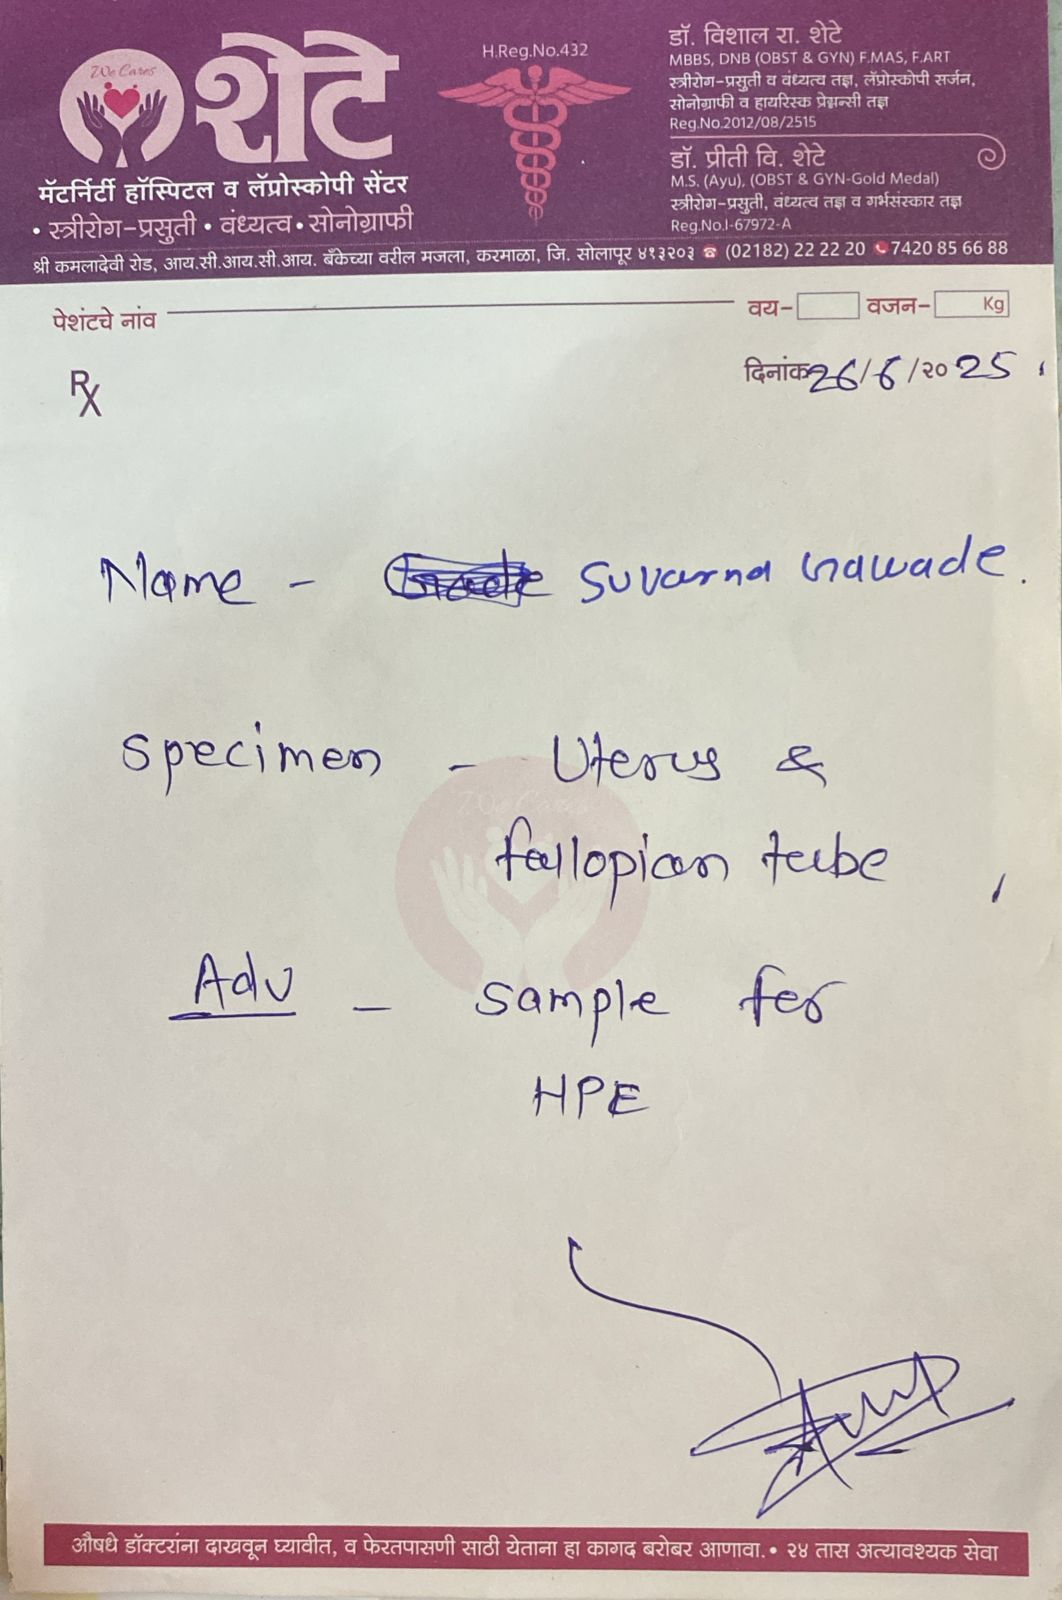 We Cares
शेटे
मॅटर्निटी हॉस्पिटल व लॅप्रोस्कोपी सेंटर
• स्त्रीरोग-प्रसुती • वंध्यत्व • सोनोग्राफी
H.Reg.No.432
डॉ. विशाल रा. शेटे
MBBS, DNB (OBST & GYN) F.MAS, F.ART
स्त्रीरोग-प्रसुती व वंध्यत्व तज्ञ, लॅप्रोस्कोपी सर्जन,
सोनोग्राफी व हायरिस्क प्रेग्नन्सी तज्ञ
Reg.No.2012/08/2515
डॉ. प्रीती वि. शेटे
M.S. (Ayu), (OBST & GYN-Gold Medal)
स्त्रीरोग-प्रसुती, वंध्यत्व तज्ञ व गर्भसंस्कार तज्ञ
Reg.No.I-67972-A
श्री कमलादेवी रोड, आय.सी.आय.सी.आय. बँकेच्या वरील मजला, करमाळा, जि. सोलापूर ४१३२०३ ☎ (02182) 22 22 20 📞7420 85 66 88
पेशंटचे नांव वय- वजन- Kg
Rx
दिनांक 26/6/२० 25
Name - Suvarna Gawade.
specimen - Uterus &
fallopian tube
We Cares
Adv - sample for
HPE
औषधे डॉक्टरांना दाखवून घ्यावीत, व फेरतपासणी साठी येताना हा कागद बरोबर आणावा. • २४ तास अत्यावश्यक सेवा